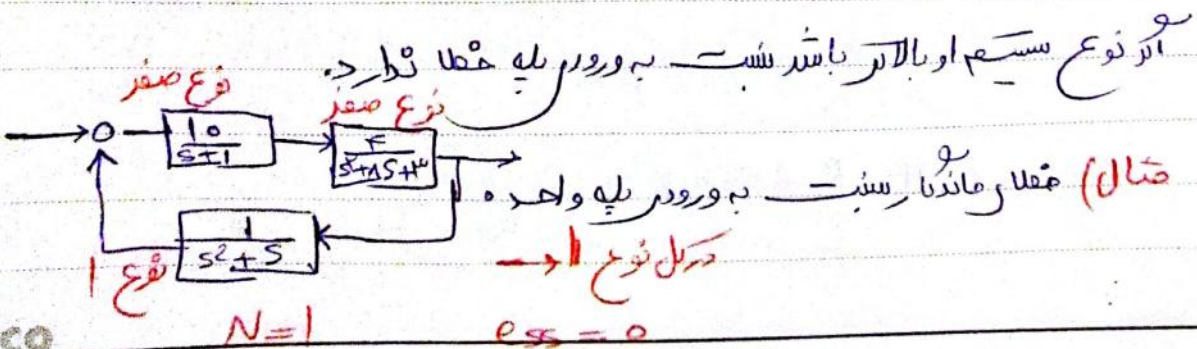 اگر نوع سیستم ۱ و بالاتر باشد نسبت به ورودی پله خطا ندارد.
نوع صفر
نوع صفر
10/(s+1)
۴/(s²+۸s+۳)
مثال) خطای ماندگار نسبت به ورودی پله واحد ؟
1/(s²+s)
نوع 1
در کل نوع 1 →
N=1
ess = 0
co